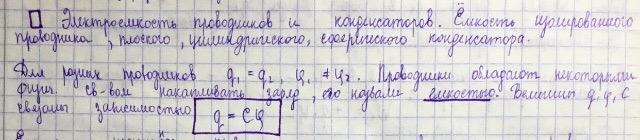 Электроемкость проводников и конденсаторов. Ёмкость изолированного
проводника, плоского, цилиндрического, сферического конденсатора.
Для разных проводников q₁ = q₂, φ₁ ≠ φ₂. Проводники обладают некоторым
физич. св-вом накапливать заряд, его назвали емкостью. Величины q, φ, C
связаны зависимостью q = Cφ